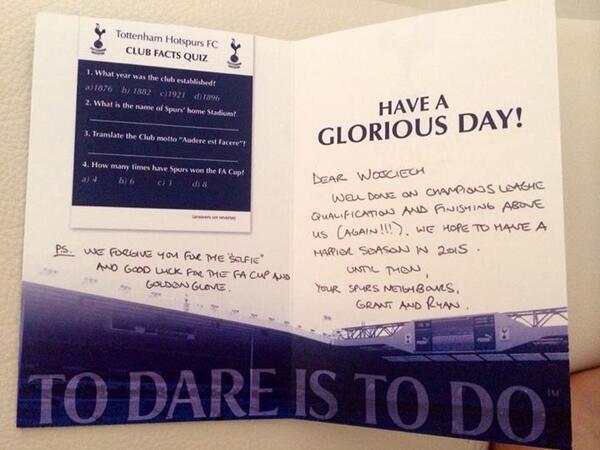 Tottenham Hotspurs FC
CLUB FACTS QUIZ
1. What year was the club established?
a)1876 b) 1882 c)1921 d)1896
2. What is the name of Spurs' home Stadium?
3. Translate the Club motto "Audere est Facere"?
4. How many times have Spurs won the FA Cup?
a) 4 b) 6 c) 3 d) 8
(answers on reverse)
PS. WE FORGIVE YOU FOR THE "SELFIE"
AND GOOD LUCK FOR THE FA CUP AND
GOLDEN GLOVE.
HAVE A
GLORIOUS DAY!
DEAR WOJCIECH
WELL DONE ON CHAMPIONS LEAGUE
QUALIFICATION AND FINISHING ABOVE
US (AGAIN!!!). WE HOPE TO HAVE A
HAPPIER SEASON IN 2015.
UNTIL THEN,
YOUR SPURS NEIGHBOURS,
GRANT AND RYAN.
TO DARE IS TO DO™